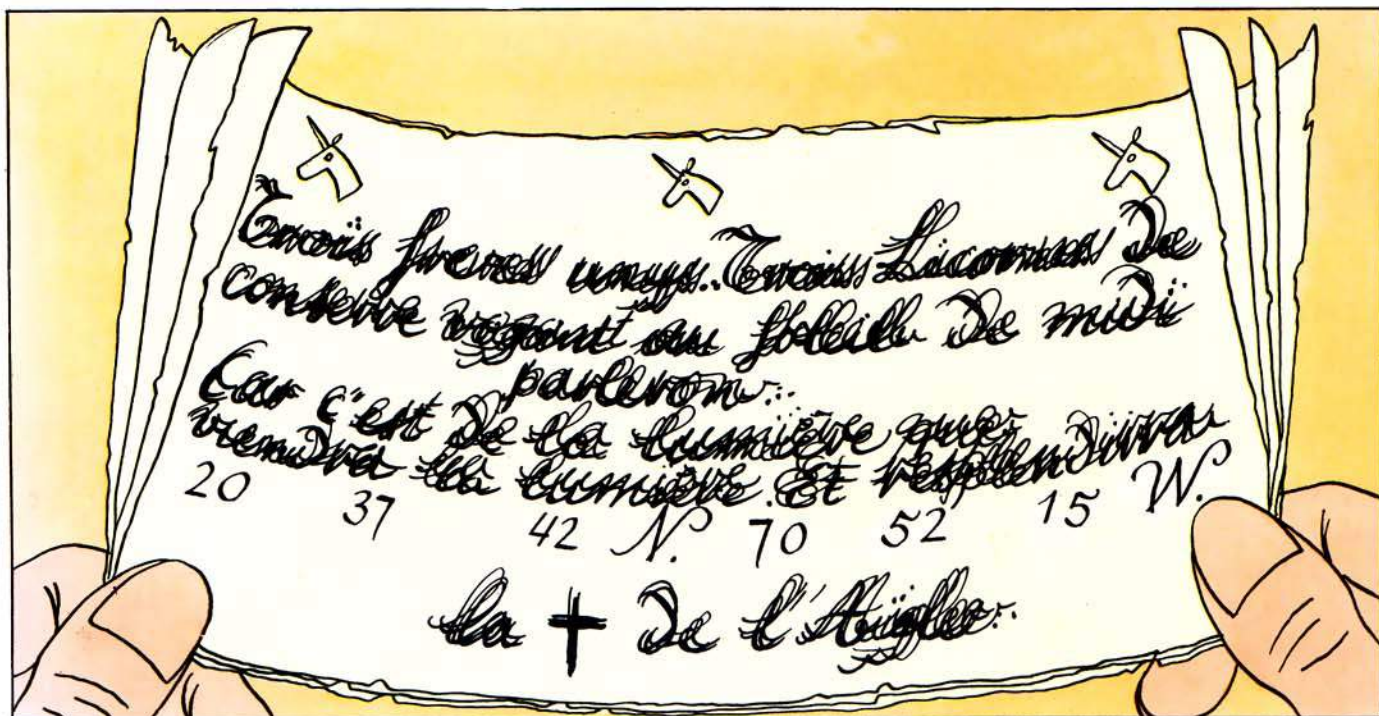 Trois freres unys. Trois Licornes de
conserve vogant au soleil de midi
parleront.
Car c'est de la lumière que
viendra la lumière. Et resplendira
20 37 42 N. 70 52 15 W.
la ✝ de l'Aigle.